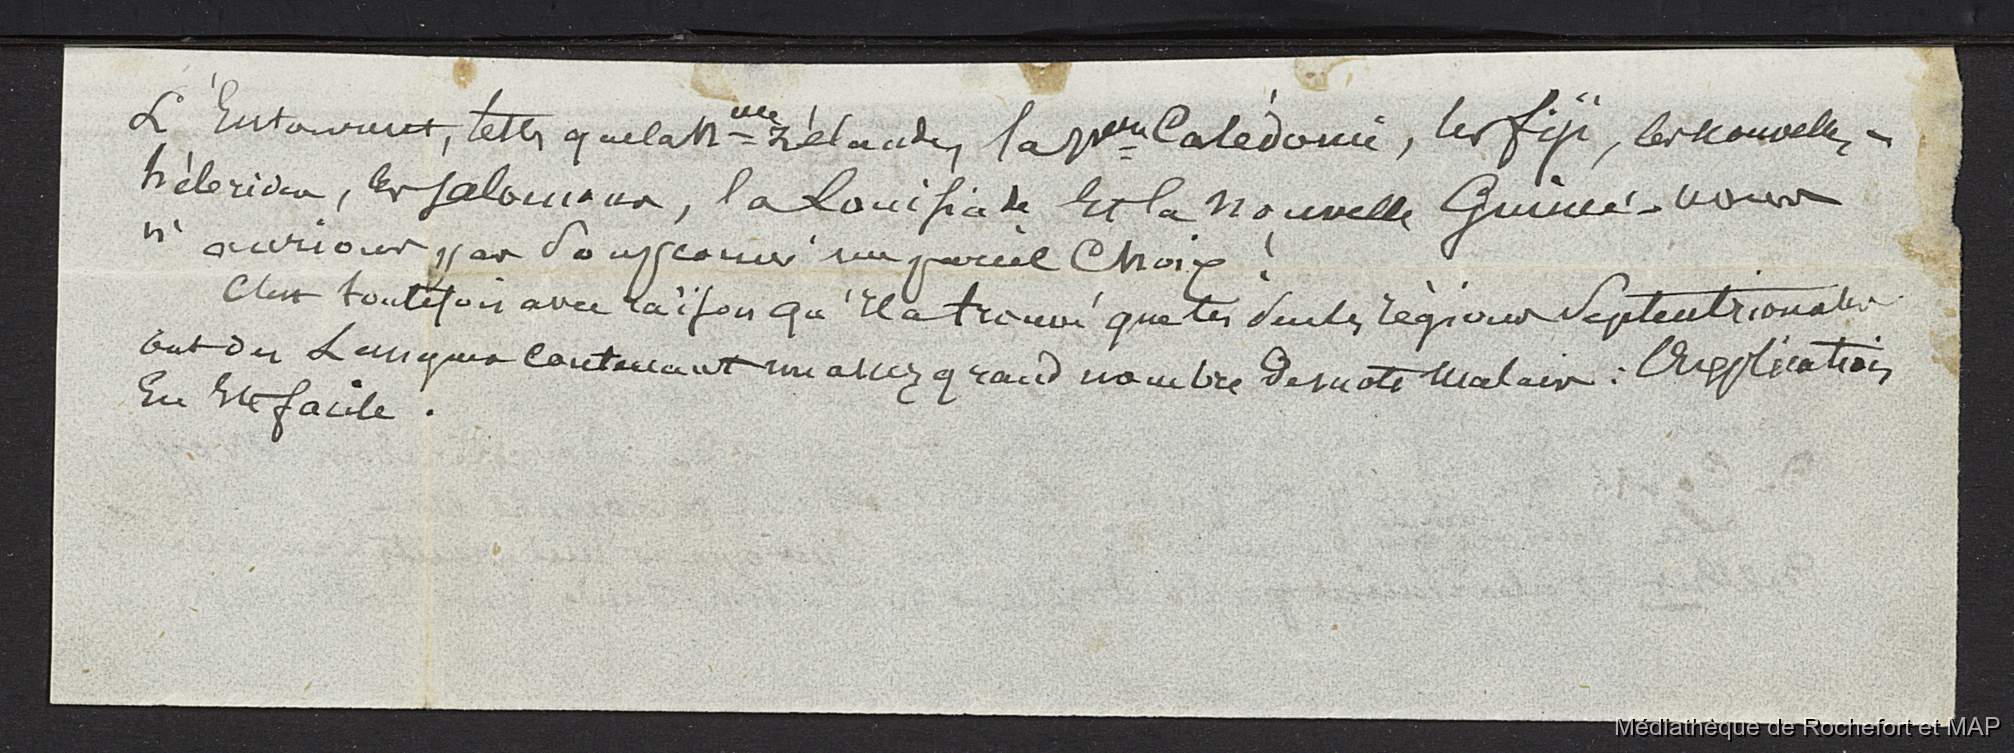 L'Entourent, telles que la N.lle Zélande, la Nlle Calédonie, les fiji, les nouvelles-
hébrides, les Salomons, la Louisiade et la Nouvelle Guinée. nous
n'aurions pas soupçonné un pareil Choix!
C'est toutefois avec raison qu'il a trouvé que les seules régions Septentrionales
ont des Langues Contenant un assez grand nombre de mots Malais : l'Explication
En Est facile.
Médiathèque de Rochefort et MAP